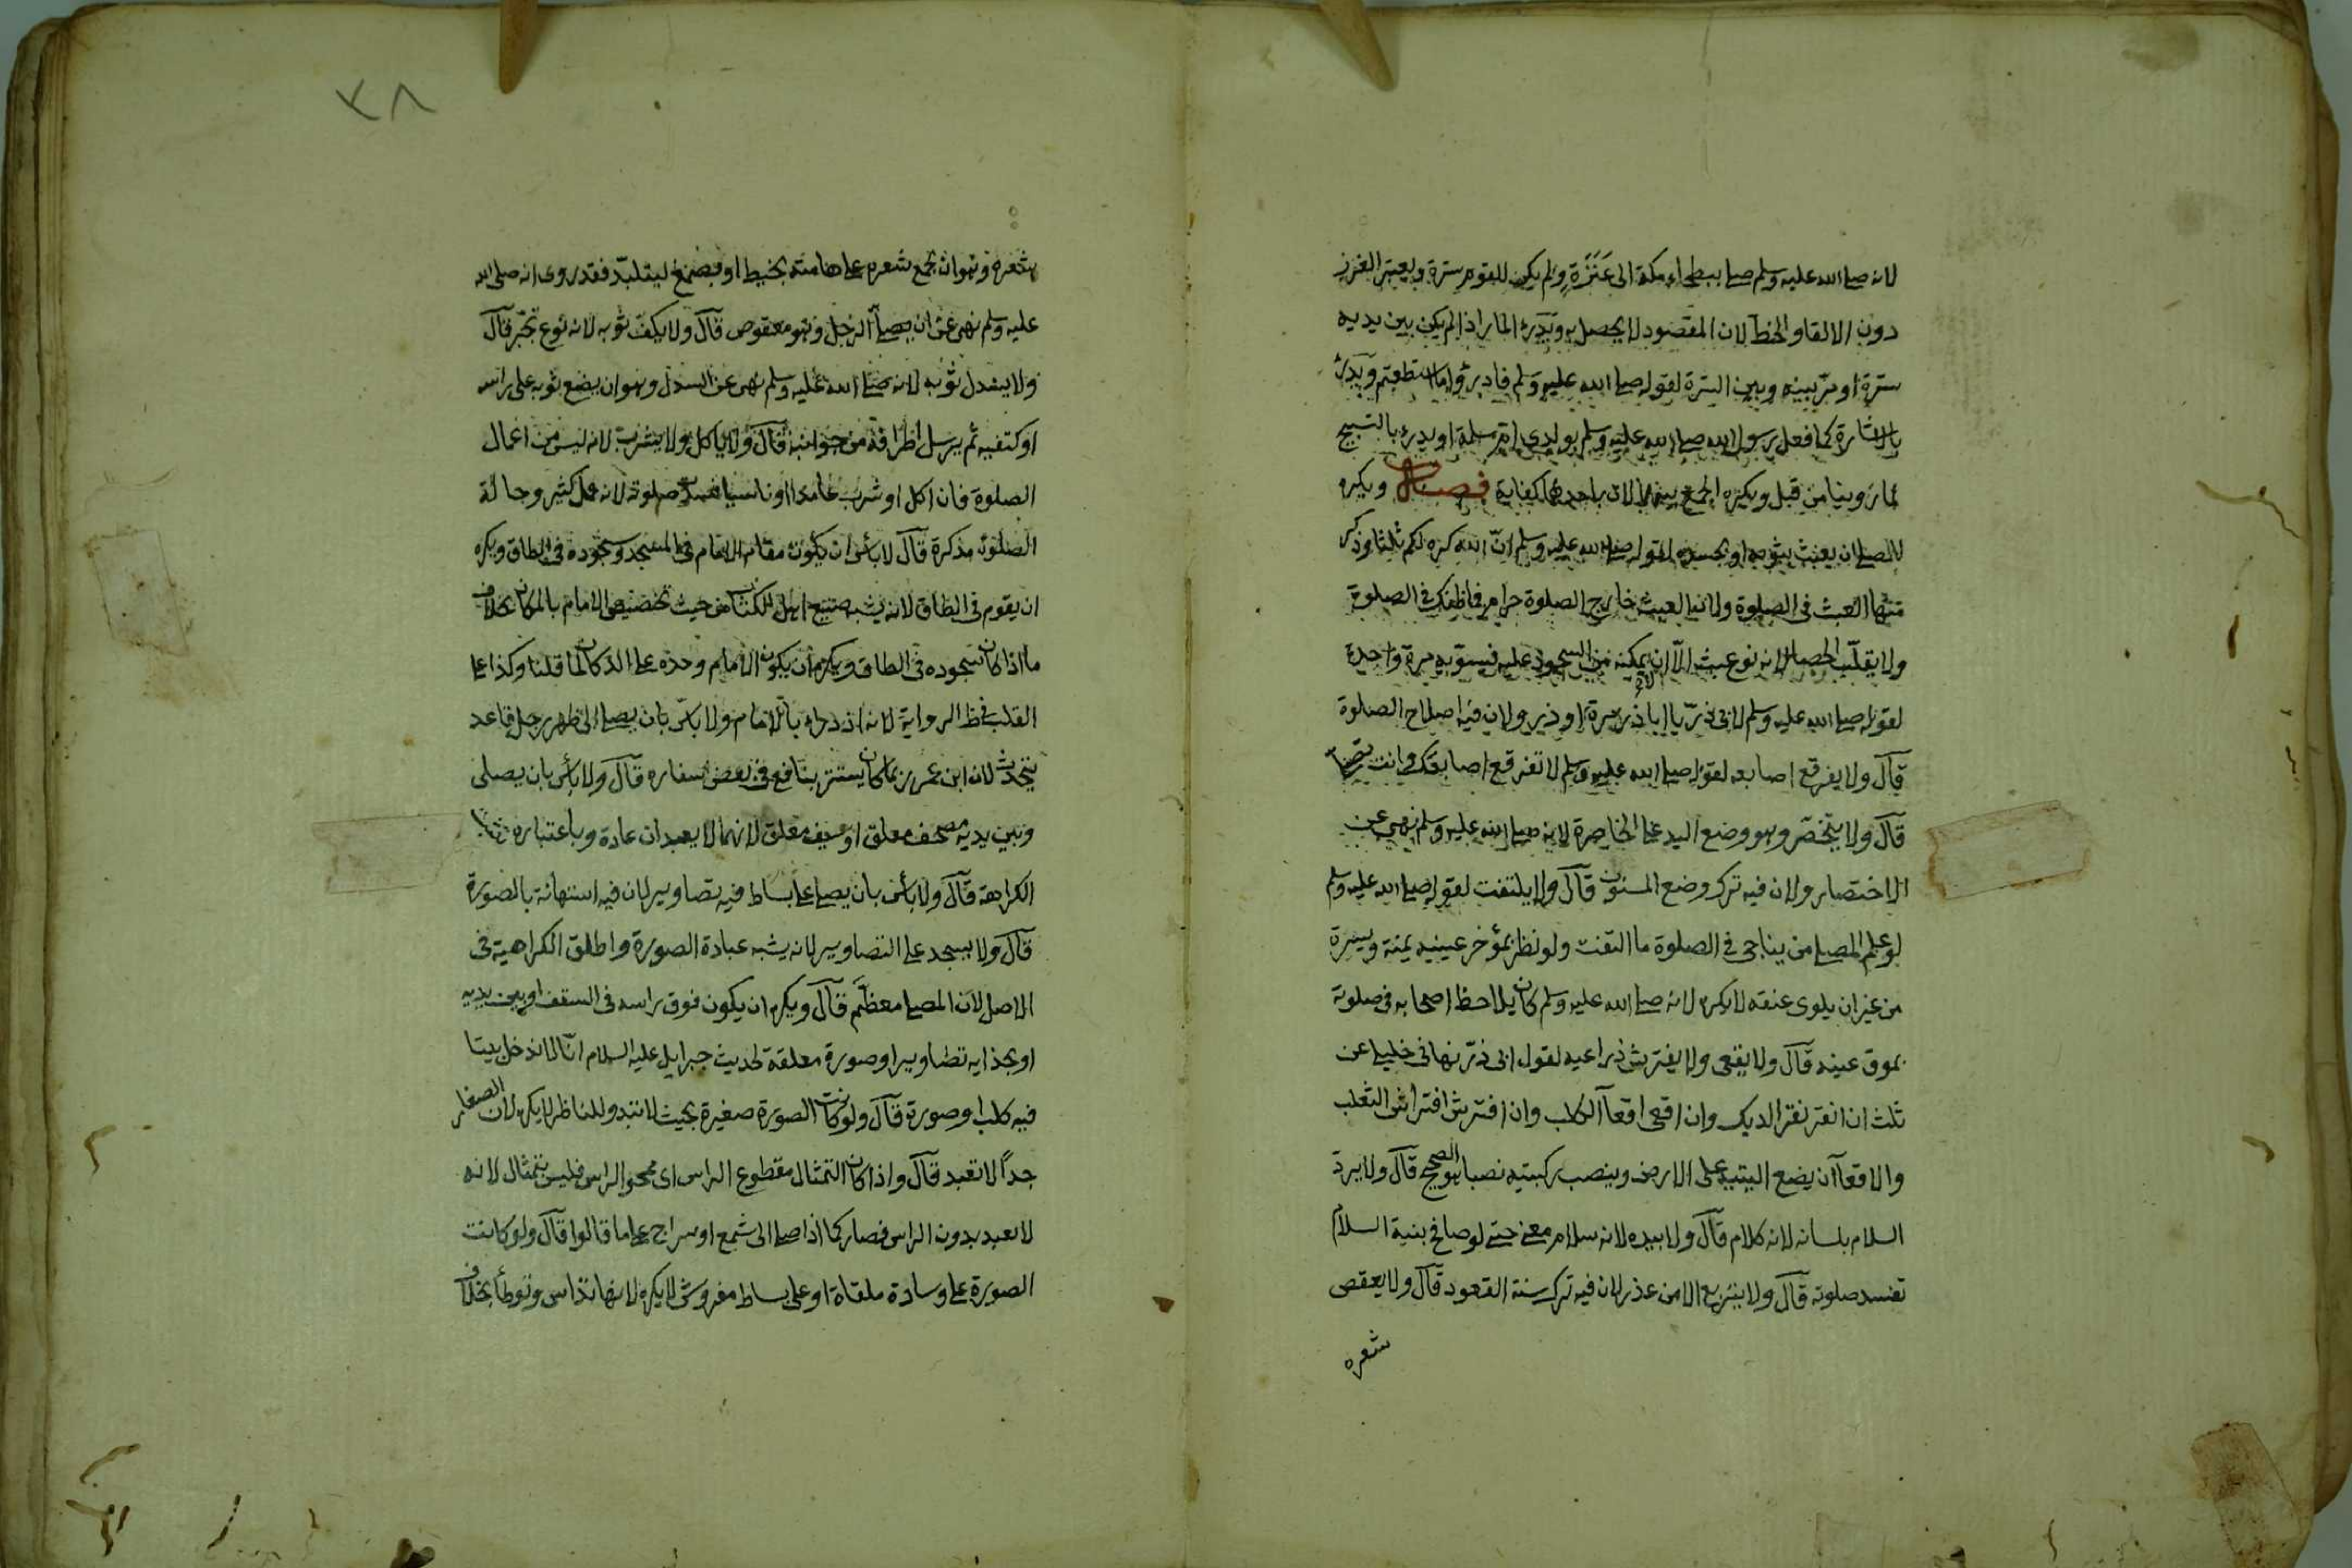 لانه صلى الله عليه وسلم صلى ببطحاء مكة الى عَنَزَةٍ ولم يكن للقوم سترة ويعتبر الغرز
دون الالقاء والخط لان المقصود لا يحصل به ويدرء المار اذا لم يكن بين يديه
سترة او مرّ بينه وبين السترة لقوله صلى الله عليه وسلم فادرؤا ما استطعتم ويدرئ
بالاشارة كما فعل رسول الله صلى الله عليه وسلم بولدي ام سلمة او يدرء بالتسبيح
لما روينا من قبل ويكره الجمع بينهما لان باحدهما كفاية فصل ويكره
للمصلي ان يعبث بثوبه او بجسده لقوله صلى الله عليه وسلم انّ الله كره لكم ثلثا وذكر
منها العبث في الصلوة ولان العبث خارج الصلوة حرام فما ظنك في الصلوة
ولا يقلّب الحصا لانه نوع عبث الّا ان لا يمكنه من السجود عليه فيسوّيه مرة واحدة
لقوله صلى الله عليه وسلم لابي ذرّ يا ابا ذر مرة او ذر ولان فيه اصلاح الصلوة
قال ولا يفرقع اصابعه لقوله صلى الله عليه وسلم لا تفرقع اصابعك وانت تصلي
قال ولا يتخصّر وهو وضع اليد على الخاصرة لانه صلى الله عليه وسلم نهى عن
الاختصار ولان فيه ترك وضع المسنون قال ولا يلتفت لقوله صلى الله عليه وسلم
لو علم المصلي من يناجي في الصلوة ما التفت ولو نظر بمؤخر عينيه يمنة ويسرة
من غير ان يلوى عنقه لا يكره لانه صلى الله عليه وسلم كان يلاحظ اصحابه في صلوته
بموق عينه قال ولا يقعى ولا يفترش ذراعيه لقول ابي ذرّ نهاني خليلي عن
ثلث ان انقر نقر الديك وان اقعى اقعآ الكلب وان افترش افتراش الثعلب
والاقعآ ان يضع اليتيه على الارض وينصب ركبتيه نصبا هو الصحيح قال ولا يردّ
السلام بلسانه لانه كلام قال ولا بيده لانه سلام معنى حتى لو صافح بنية السلام
تفسد صلوته قال ولا يتربع الا من عذر لان فيه ترك سنة القعود قال ولا يعقص
شعره
٣٨
شعره وهو ان يجمع شعره على هامته بخيط او بصمغ ليتلبّد فقد روى انه صلى الله
عليه وسلم نهى عن ان يصلي الرجل وهو معقوص قال ولا يكفّ ثوبه لانه نوع تجبّر قال
ولا يسدل ثوبه لانه صلى الله عليه وسلم نهى عن السدل وهو ان يضع ثوبه على راسه
او كتفيه ثم يرسل اطرافه من جوانبه قال ولا ياكل ولا يشرب لانه ليس من اعمال
الصلوة فان اكل او شرب عامدا او ناسيا فسدت صلوته لانه عمل كثير وحالة
الصلوة مذكرة قال لا بأس ان يكون مقام الامام في المسجد وسجوده في الطاق ويكره
ان يقوم في الطاق لانه يشبه صنيع اهل الكتاب من حيث تخصيص الامام بالمكان بخلاف
ما اذا كان سجوده في الطاق ويكره ان يكون الامام وحده على الدكان لما قلنا وكذا على
القلب في ظ الرواية لانه ازدراء بالامام ولا بأس بان يصلى الى ظهر رجل قاعد
يتحدث لان ابن عمر ربما كان يستتر بنافع في بعض اسفاره قال ولا بأس بان يصلى
وبين يديه مصحف معلق او سيف معلق لانهما لا يعبدان عادة وباعتباره تثبت
الكراهة قال ولا بأس بان يصلى على بساط فيه تصاوير لان فيه استهانة بالصورة
قال ولا يسجد على التصاوير لانه يشبه عبادة الصورة واطلق الكراهية في
الاصل لان المصلي معظّم قال ويكره ان يكون فوق راسه في السقف او بين يديه
او بحذايه تصاوير او صورة معلقة لحديث جبرايل عليه السلام انّا لا ندخل بيتا
فيه كلب او صورة قال ولو كانت الصورة صغيرة بحيث لا تبدو للناظر لا يكره لان الصغار
جداً لا تعبد قال واذا كان التمثال مقطوع الراس اى ممحو الراس فليس بتمثال لانه
لا يعبد بدون الراس فصار كما اذا صلى الى شمع او سراج على ما قالوا قال ولو كانت
الصورة على وسادة ملقاة او على بساط مفروش لا يكره لانها تداس وتوطأ بخلاف